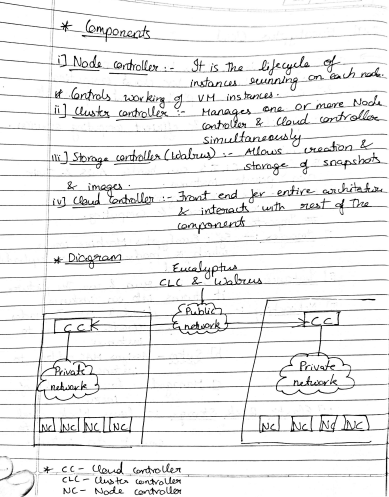 * Components
i] Node controller :- It is the lifecycle of
instances running on each node.
* Controls working of VM instances.
ii] Cluster controller :- Manages one or more Node
controller & Cloud controller
simultaneously
iii] Storage controller (Walrus) :- Allows creation &
storage of snapshots
& images.
iv] Cloud Controller :- Front end for entire architature
& interacts with rest of The
components
* Diagram
Eucalyptus
CLC & Walrus
Public
network
CC
CC
Private
network
Private
network
NC NC NC NC
NC NC NC NC
* CC - Cloud controller
CLC - Cluster controller
NC - Node controller